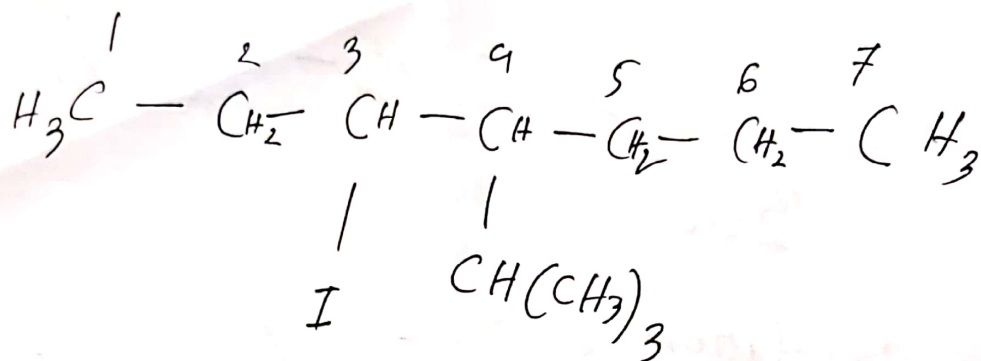 1 2 3 4 5 6 7
H₃C – CH₂ – CH – CH – CH₂ – CH₂ – CH₃
I CH(CH₃)₃